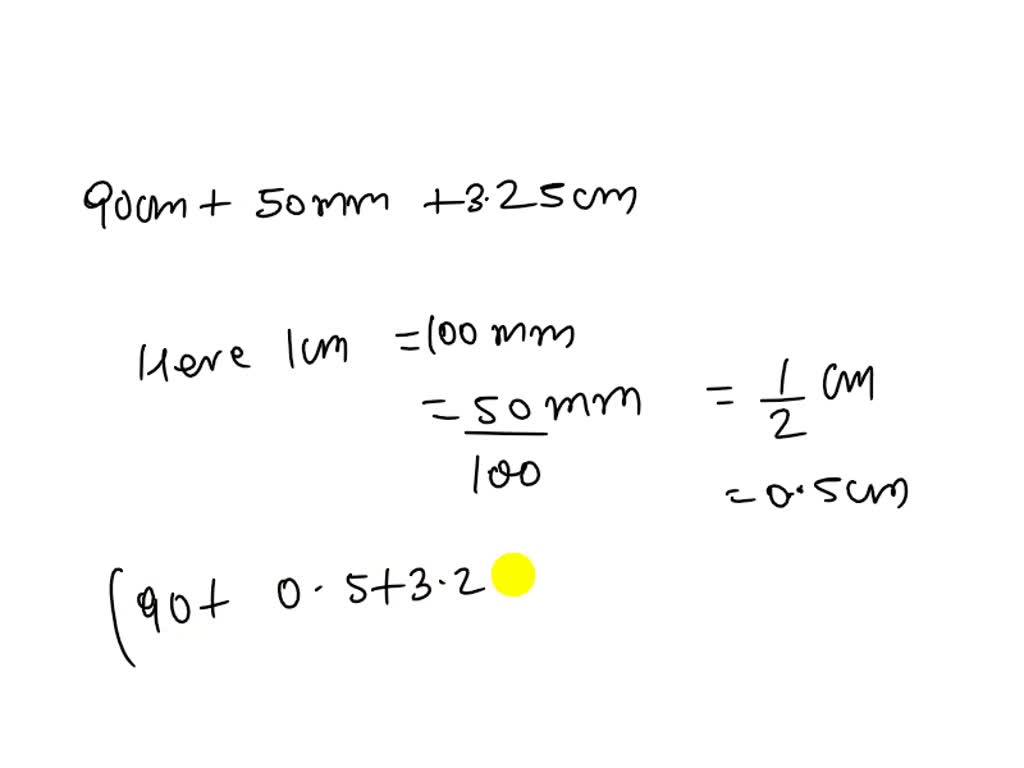 90cm + 50mm + 3.25cm
Here 1cm = 100mm
= 50/100 mm = 1/2 cm
= 0.5cm
(90 + 0.5 + 3.2